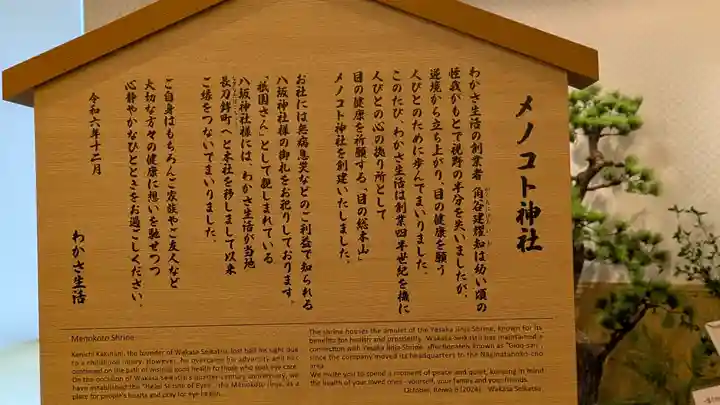 メノコト神社
わかさ生活の創業者 角谷建耀知は幼い頃の
怪我がもとで視野の半分を失いましたが、
逆境から立ち上がり、目の健康を願う
人びとのために歩んでまいりました。
このたび、わかさ生活は創業四半世紀を機に
人びとの心の拠り所として
目の健康を祈願する、「目の総本山」
メノコト神社を創建いたしました。
お社には無病息災などのご利益で知られる
八坂神社様の御札をお祀りしております。
「祇園さん」として親しまれている
八坂神社様には、わかさ生活が当地
長刀鉾町へと本社を移しまして以来
ご縁をつないでまいりました。
ご自身はもちろんご家族やご友人など
大切な方々の健康に想いを馳せつつ
心静やかなひとときをお過ごしください。
令和六年十二月
わかさ生活
Menokoto Shrine
Kenichi Kakutani, the founder of Wakasa Seikatsu, lost half his sight due
to a childhood injury. However, he overcame his adversity and has
continued on the path of wishing good health to those who seek eye care.
On the occasion of Wakasa Seikatsu's quarter-century anniversary, we
have established the "Head Shrine of Eyes", the Menokoto Jinja, as a
place for people's hearts and pray for eye health.
The shrine houses the amulet of the Yasaka Jinja Shrine, known for its
benefits for health and prosperity. Wakasa Seikatsu has maintained a
connection with Yasaka Jinja Shrine, affectionately known as "Gion-san",
since the company moved its headquarters to the Naginataboko-cho
area.
We invite you to spend a moment of peace and quiet, keeping in mind
the health of your loved ones - yourself, your family and your friends.
Reiwa 6 (2024) Wakasa Seikatsu